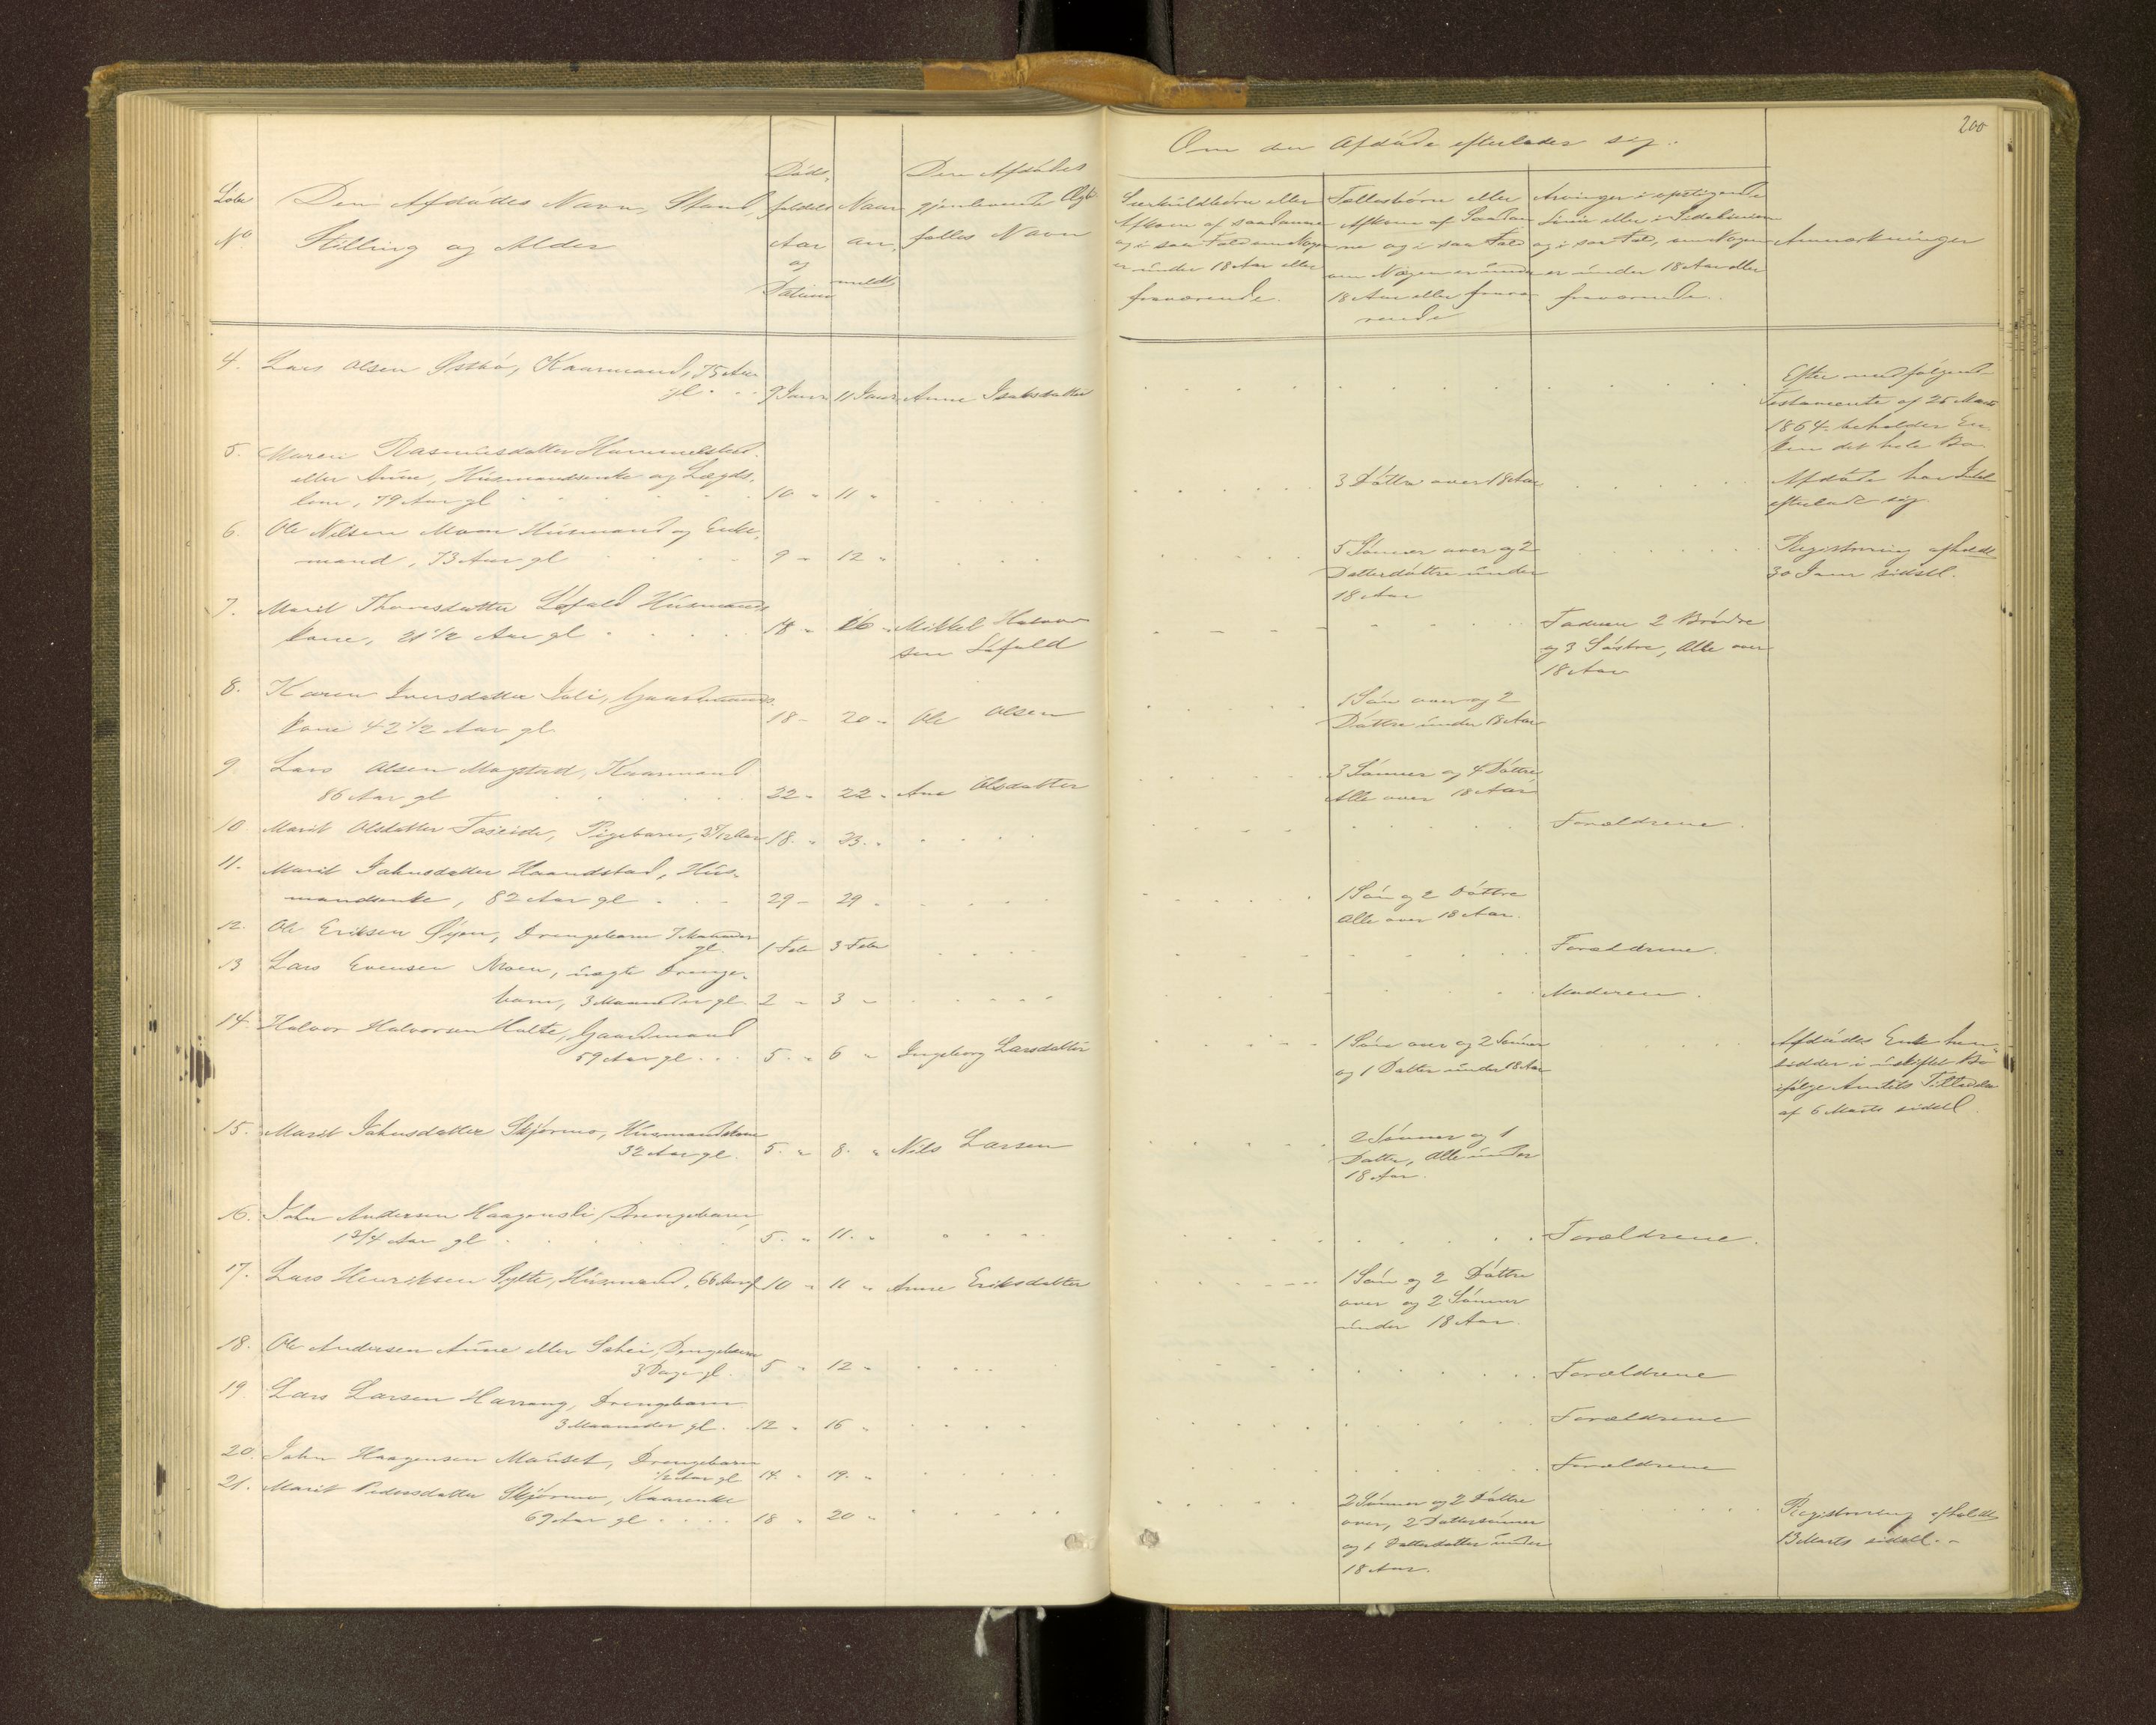 200
Om den Afdøde efterlader sig:
Løbe
No
Den Afdødes Navn, Stand,
Stilling og Alder
Døds,
faldets
Aar
og
Datum
Naar
an,
meldt
Den Afdødes
gjenlevende Ægte
fælles Navn
Særkuldbørn eller
Afkom af saadanne
og i saa Fald om Nogen
er under 18 Aar eller
fraværende.
Fællesbørn eller
Afkom af Saadan
ne og i saa Fald
om Nogen er under
18 Aar eller fravæ
rende
Arvinger i opstigende
Linie eller i Sidelinien
og i saa Fald, om Nogen
er under 18 Aar eller
fraværende.
Anmærkninger
4. Lars Olsen Østbø, Kaarmand, 75 Aar
gl. 9 Janr 11 Janr Anne Isaksdatter
Efter medfølgende
Testamente af 25 Marts
1864 beholder En
ken det hele Bo
5. Maren Rasmusdatter Hammelsbød
eller Aune, Husmandsenke og Lægds,
lem, 79 Aar gl 10 " 11 " 3 Døttre over 18 Aar
Afdøde har Intet
efterladt sig.
6. Ole Nilsen Moen Husmand og Enke,
mand, 73 Aar gl 9 " 12 "
5 Sønner over og 2
Datterdøttre under
18 Aar
Registrering afholdt
30 Janr sidstl.
7. Marit Thoresdatter Løfald Husmands
kone, 21 1/2 Aar gl 18 " 16 " Mikkel Halvor
sen Løfald
Faderen 2 Brødre
og 3 Søstre, Alle over
18 Aar
8. Karen Iversdatter Joli, Gaardmands
kone 42 1/2 Aar gl. 18 - 20 " Ole Olsen
1 Søn over og 2
Døttre under 18 Aar
9. Lars Olsen Mogstad, Kaarmand
86 Aar gl 22 - 22 " Ane Olsdatter
3 Sønner og 4 Døttre,
Alle over 18 Aar
10. Marit Olsdatter, Pigebarn, 18. " 23. " Forældrene.
11. Marit Johnsdatter Haandstad, Hus-
mandsenke, 82 Aar gl 29 - 29 "
1 Søn og 2 Døttre
Alle over 18 Aar.
12. Ole Eriksen Øyen, Drengebarn 7 Maaneder
gl. 1 Febr 3 Febr Forældrene.
13 Lars Evensen Moen, uægte Drenge-
barn, 3 Maaneder gl. 2 " 3 " Moderen.
14. Halvor Halvorsen Holte, Gaardmand
59 Aar gl. 5. " 6 " Ingeborg Larsdatter
1 Søn over og 2 Sønner
og 1 Datter under 18 Aar
Afdødes Enke hen,
sidder i uskiftet Bo
ifølge Amtets Tilladelse
af 6 Marts sidstl.
15. Marit Johnsdatter Skjørmo, Husmandskone
32 Aar gl. 5. " 8. " Nils Larsen
2 Sønner og 1
Datter, Alle under
18 Aar.
16. John Andersen Haagensli, Drengebarn,
1 3/4 Aar gl 5. " 11. " Forældrene.
17. Lars Henriksen Sylte, Husmand, 66 Aar gl 10 " 11 " Anne Eriksdatter
1 Søn og 2 Døttre
over og 2 Sønner
under 18 Aar.
18. Ole Andersen Aune eller, Drengebarn
3 Dage gl. 5 " 12 " Forældrene
19. Lars Larsen Harrang, Drengebarn
3 Maaneder gl. 12 " 16 " Forældrene
20. John Haagensen Mauset, Drengebarn
1/2 Aar gl 14. " 19. " Forældrene
21. Marit Pedersdatter Skjørmo, Kaarenke
69 Aar gl 18 " 20 "
2 Sønner og 2 Døttre
over, 2 Dattersønner
og 1 Datterdatter under
18 Aar.
Registrering afholdt
13 Marts sidstl.